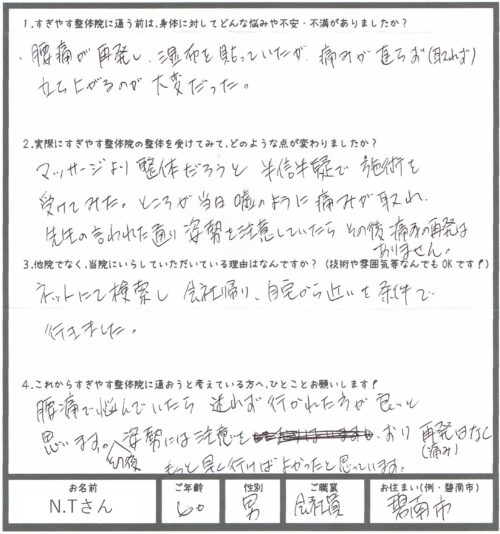 1.すぎやす整体院に通う前は、身体に対してどんな悩みや不安・不満がありましたか？
腰痛が再発し、湿布を貼っていたが、痛みが直らず(取れず)
立ち上がるのが大変だった。
2.実際にすぎやす整体院の整体を受けてみて、どのような点が変わりましたか？
マッサージより整体だろうと半信半疑で施術を
受けてみた。ところが当日嘘のように痛みが取れ、
先生の言われた通り姿勢を注意していたらその後痛みの再発は
ありません。
3.他院でなく、当院にいらしていただいている理由はなんですか？(技術や雰囲気等なんでもOKです！)
ネットにて検索し会社帰り、自宅から近いを条件で
行きました。
4.これからすぎやす整体院に通おうと考えている方へ、ひとことお願いします！
腰痛で悩んでいたら迷わず行かれた方が良いと
思います。その後姿勢には注意をしており再発はなし
(痛み)
もっと早く行けばよかったと思っています。
お名前 ご年齢 性別 ご職業 お住まい(例・碧南市)
N.Tさん 60 男 会社員 碧南市